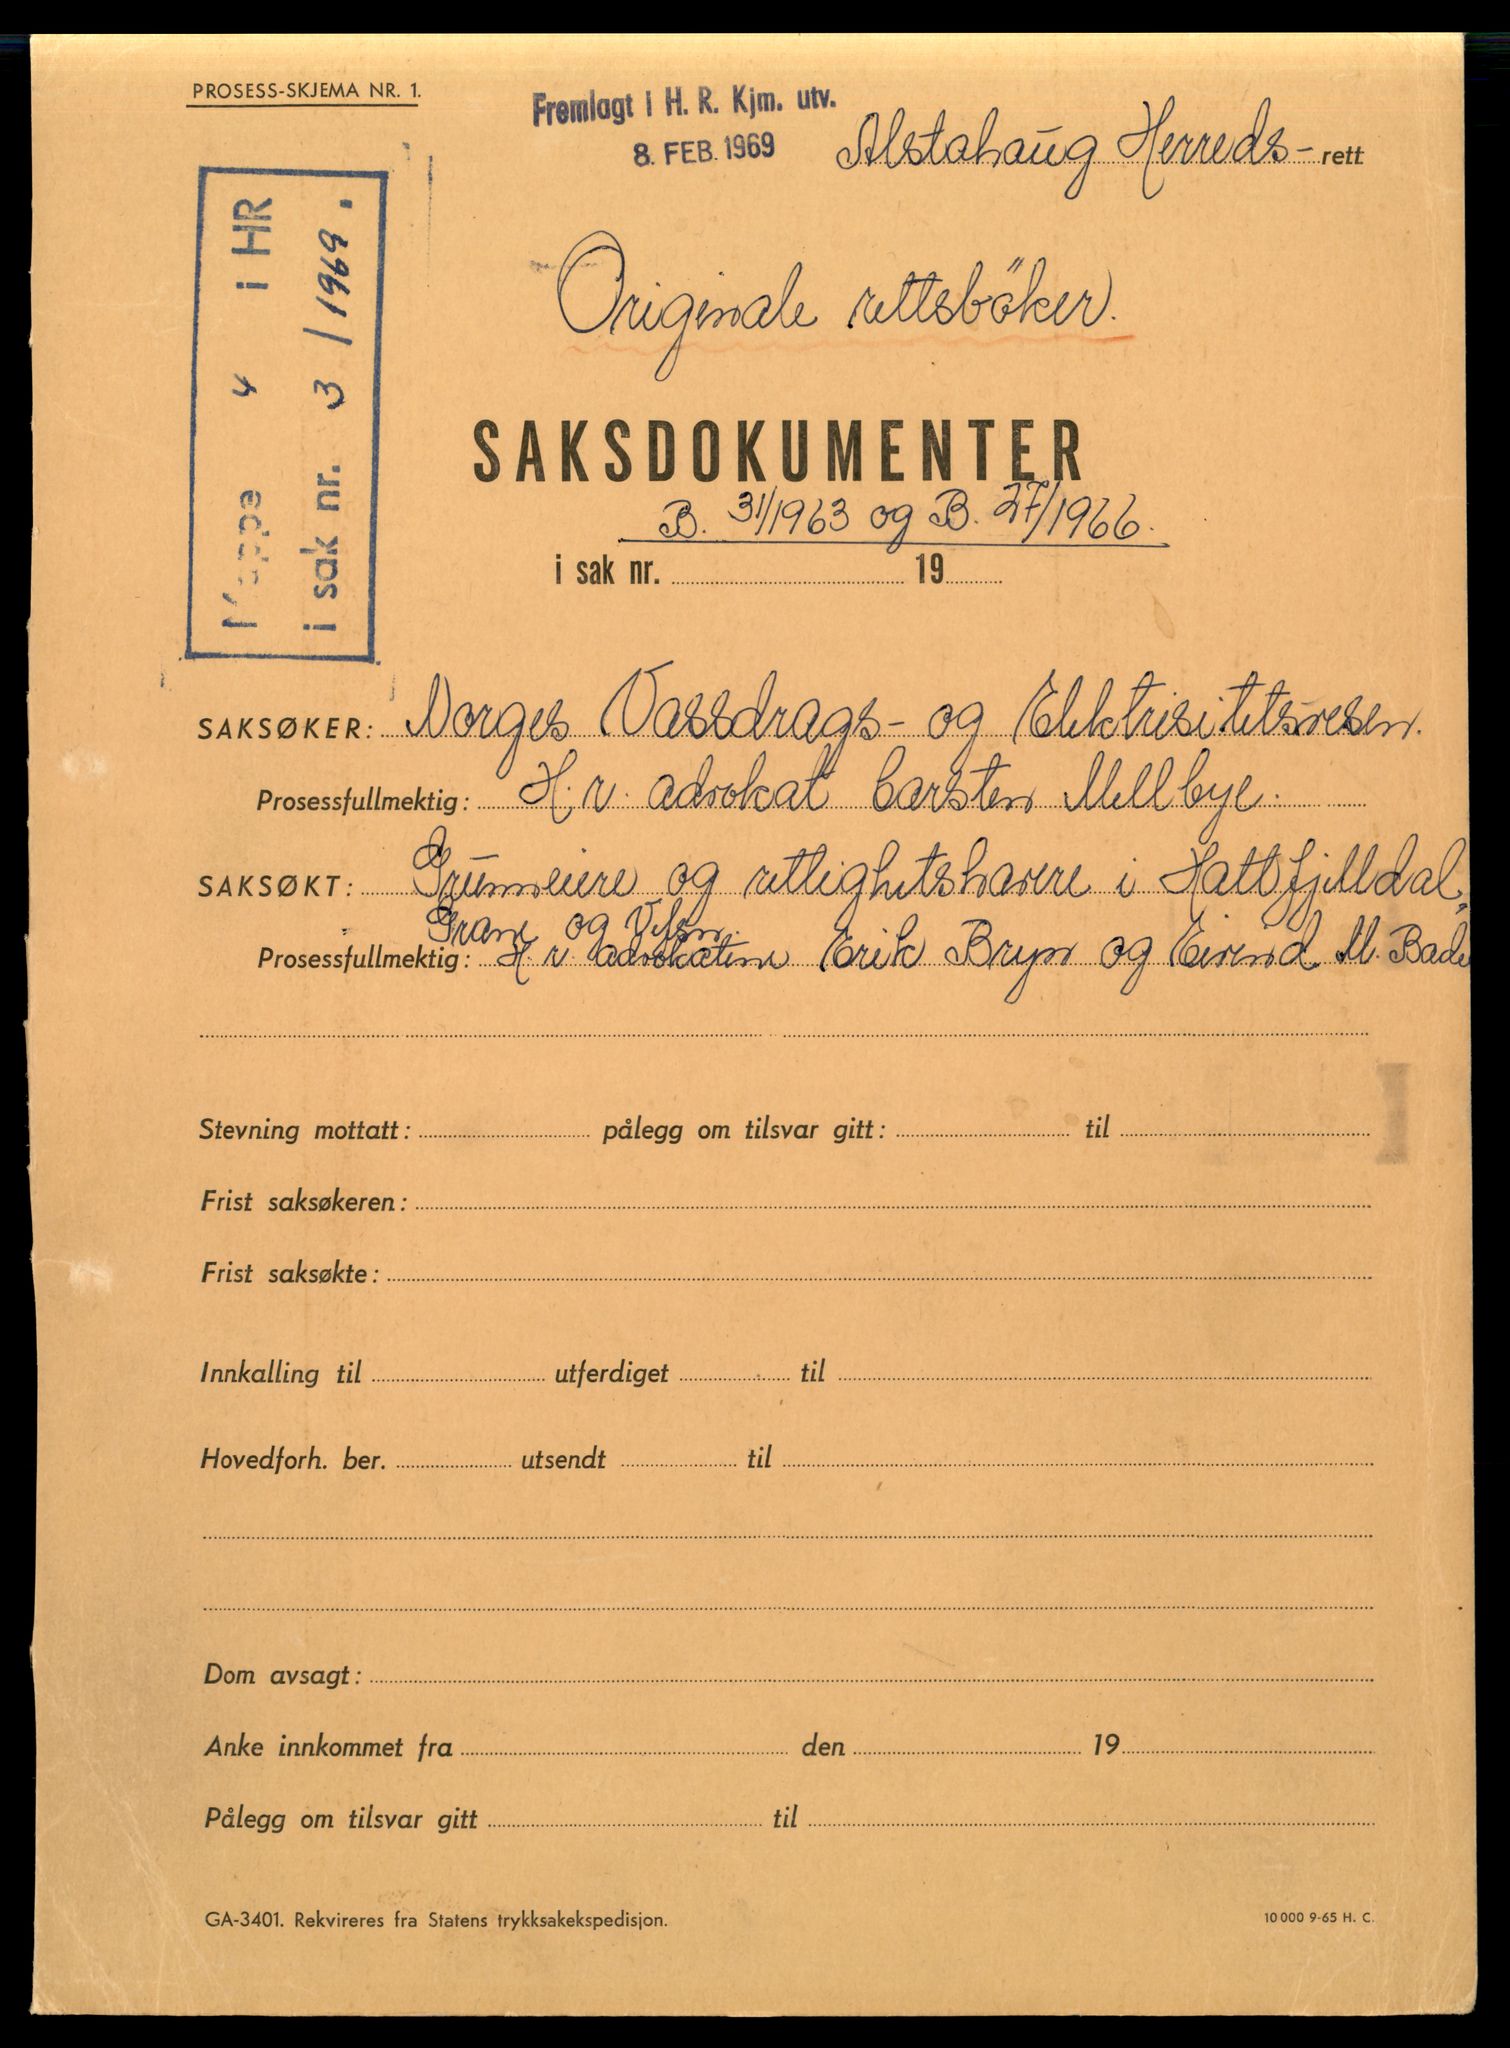 PROSESS-SKJEMA NR. 1.
Fremlagt i H. R. Kjm. utv.
8. FEB. 1969
Alstahaug Herreds-rett
Mappe 4 i HR
i sak nr. 3/1969.
Originale rettsbøker.
SAKSDOKUMENTER
B. 31/1963 og B. 27/1966.
i sak nr. 19
SAKSØKER: Norges Vassdrags- og Elektrisitetsvesen.
Prosessfullmektig: H.r. advokat Carsten Mellbye.
SAKSØKT: Grunneiere og rettighetshavere i Hattfjelldal,
Grane og Vefsn.
Prosessfullmektig: H.r. advokatene Erik Bryn og Eivind M. Bade
Stevning mottatt: pålegg om tilsvar gitt: til
Frist saksøkeren:
Frist saksøkte:
Innkalling til utferdiget til
Hovedforh. ber. utsendt til
Dom avsagt:
Anke innkommet fra den 19
Pålegg om tilsvar gitt til
GA-3401. Rekvireres fra Statens trykksakekspedisjon.
10 000 9-65 H. C.